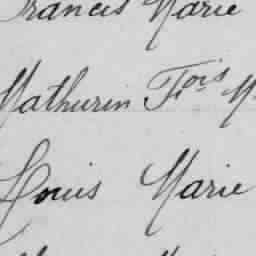 Francis Marie
Mathurin Fois M
Louis Marie